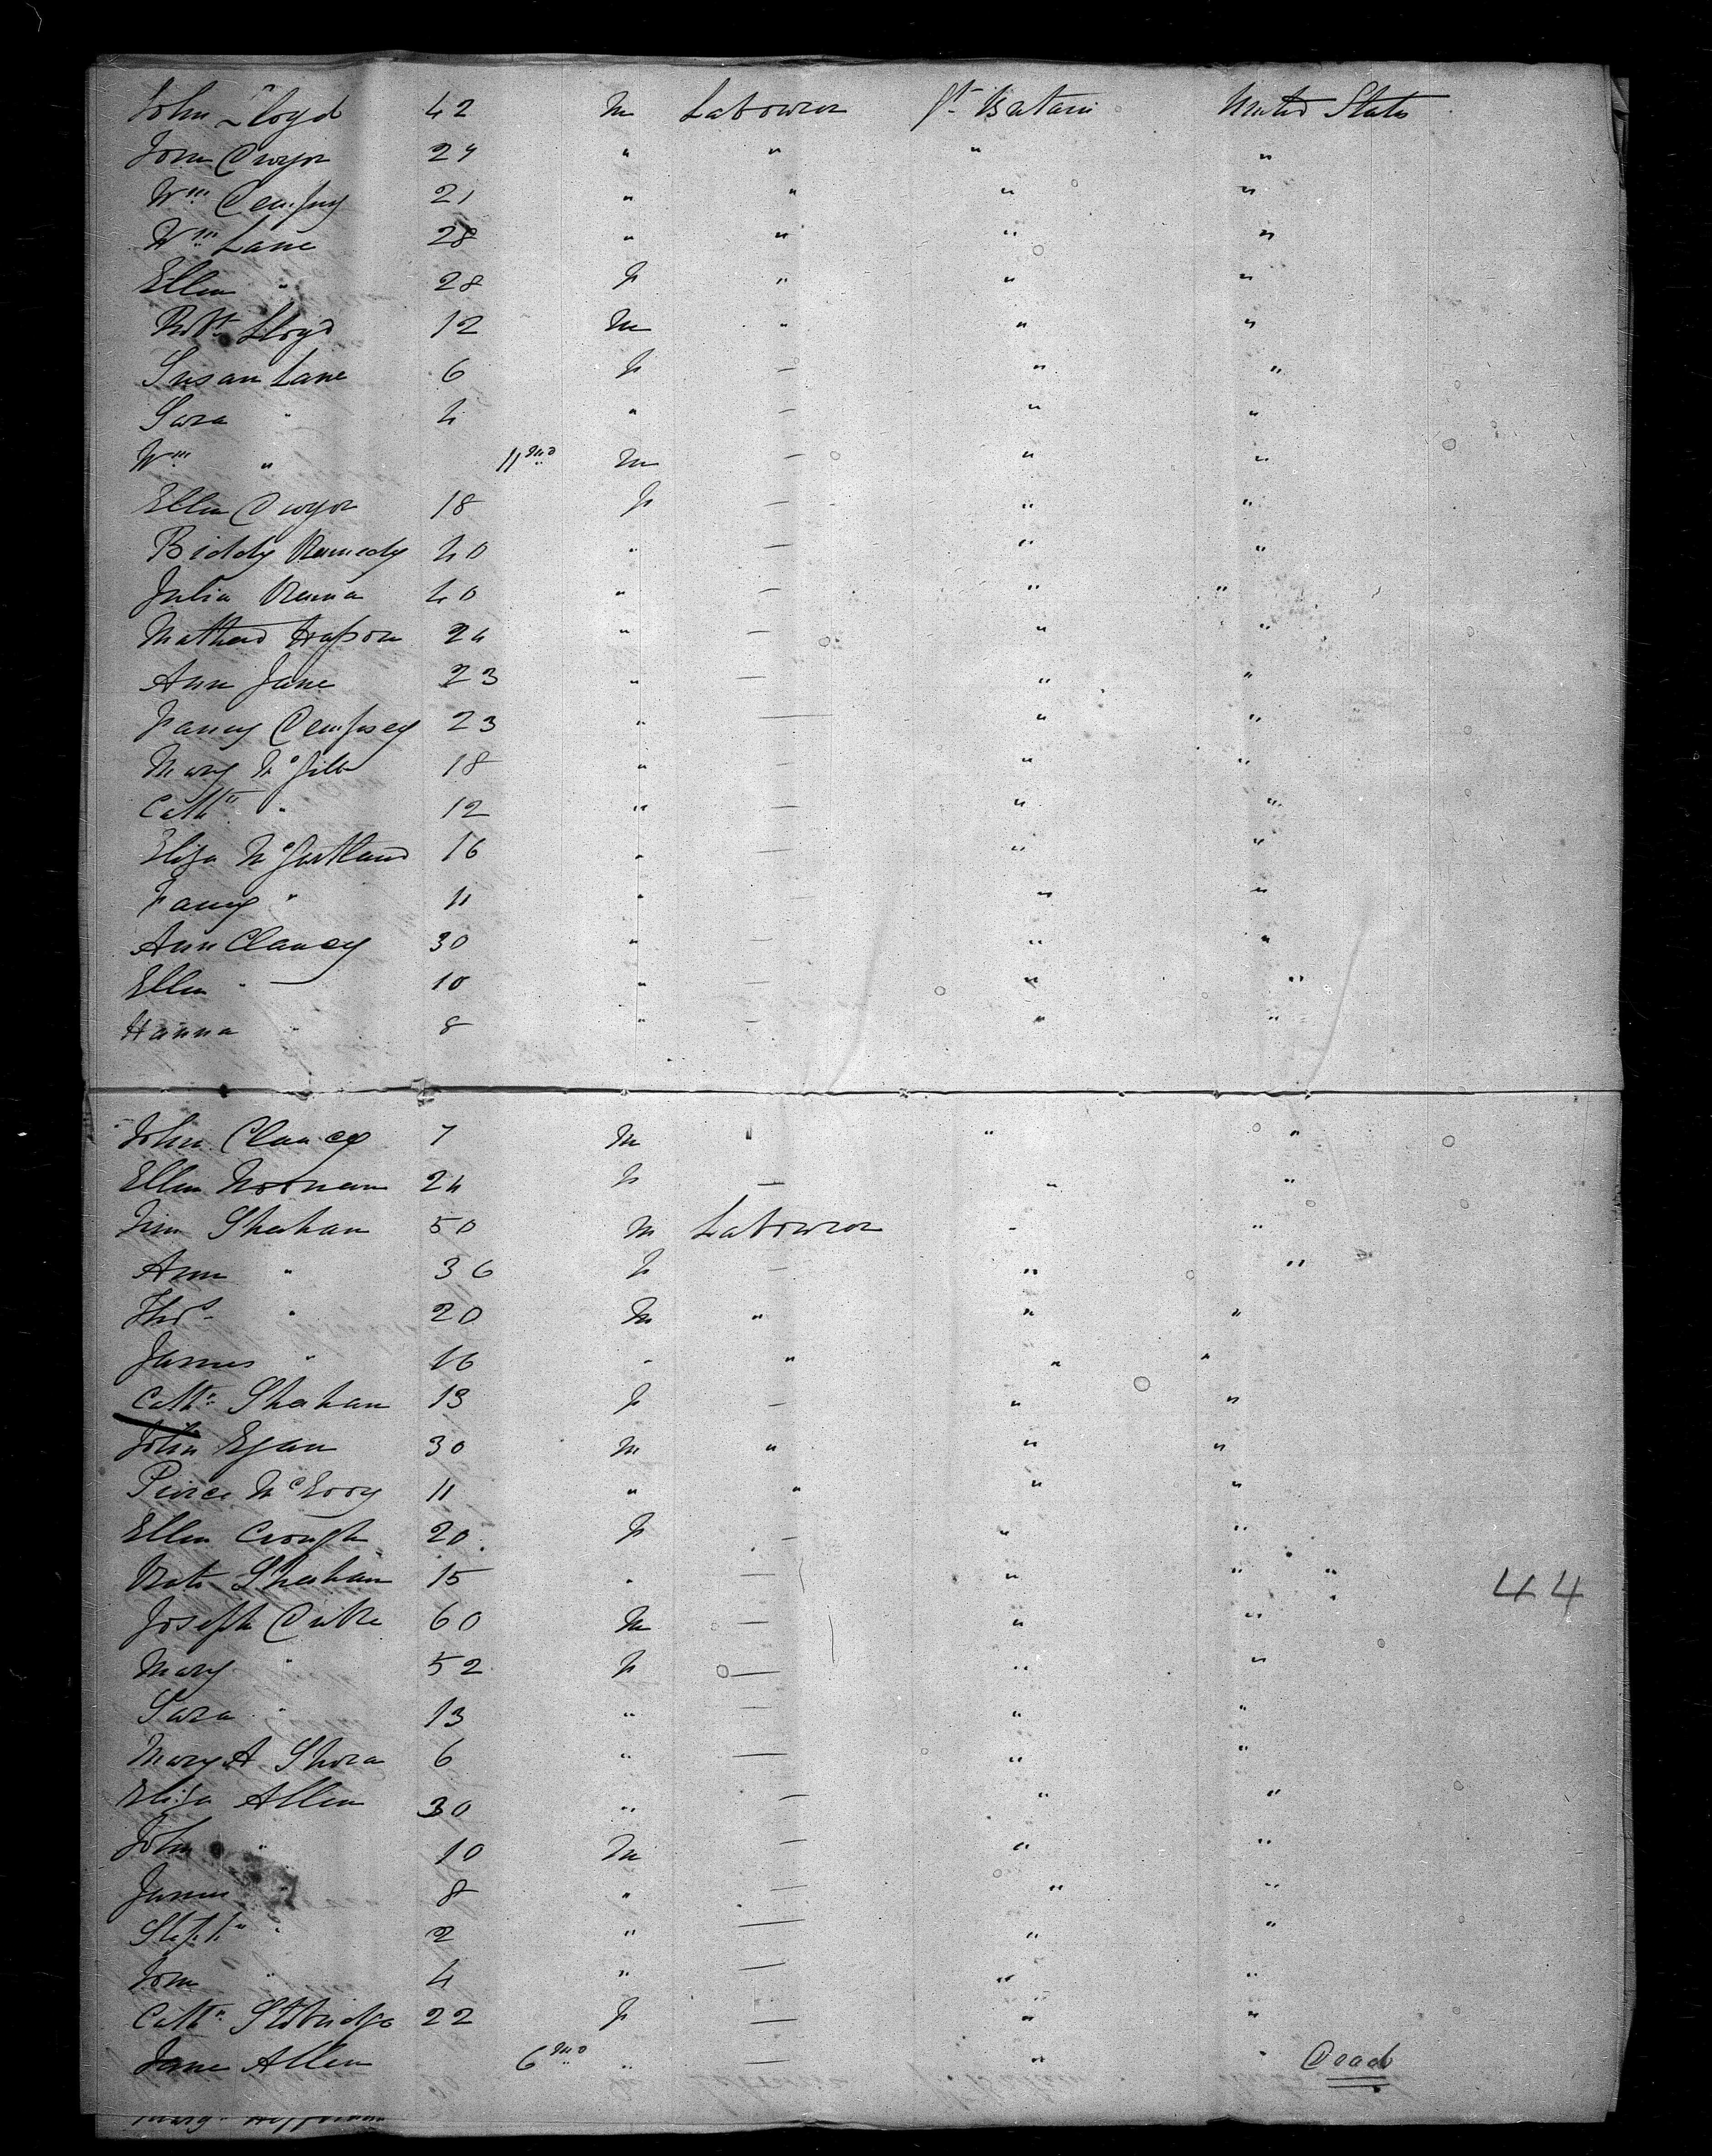 John Lloyd 42 M Labourer Gt Britain United States
Tom Dwyer 24 " " " "
Wm Dempsy 21 " " " "
Wm Lane 28 " " " "
Ellen " 28 F " " "
Robt Lloyd 12 M " " "
Susan Lane 6 F — " "
Sara " 4 " — " "
Wm " 11 Mo M — " "
Ellen Dwyer 18 F — " "
Biddy Kennedy 40 " — " "
Julia Kenna 40 " — " "
24 " — " "
Ann Jane 23 " — " "
Fanny Dempsey 23 " — " "
Mary McGill 18 " — " "
Cathn " 12 " — " "
Eliza McGartland 16 " — " "
Fanny " 11 " — " "
Ann Clancy 30 " — " "
Ellen " 10 " — " "
Hanna " 8 " — " "
John Clancy 7 M " "
Ellen Noonan 24 F — " "
Sheahan 50 M Labourer " "
Ann " 36 F — " "
Thos " 20 M " " "
James " 16 " " " "
Cathn Sheahan 13 F — " "
John Egan 30 M " " "
Pierce McEvoy 11 " " " "
Ellen Crough 20 F — " "
Kate Sheahan 15 " — " " "
Joseph 60 M — " "
Mary " 52 F — " "
Sara " 13 " — " "
Mary A 6 " — " "
Eliza Allen 30 " — " "
John " 10 M — " "
James " 8 " — " "
Stephn " 2 " — " "
Tom " 4 " — " "
Cathn 22 F — " "
Jane Allen 6 Mo " — " " Dead
44